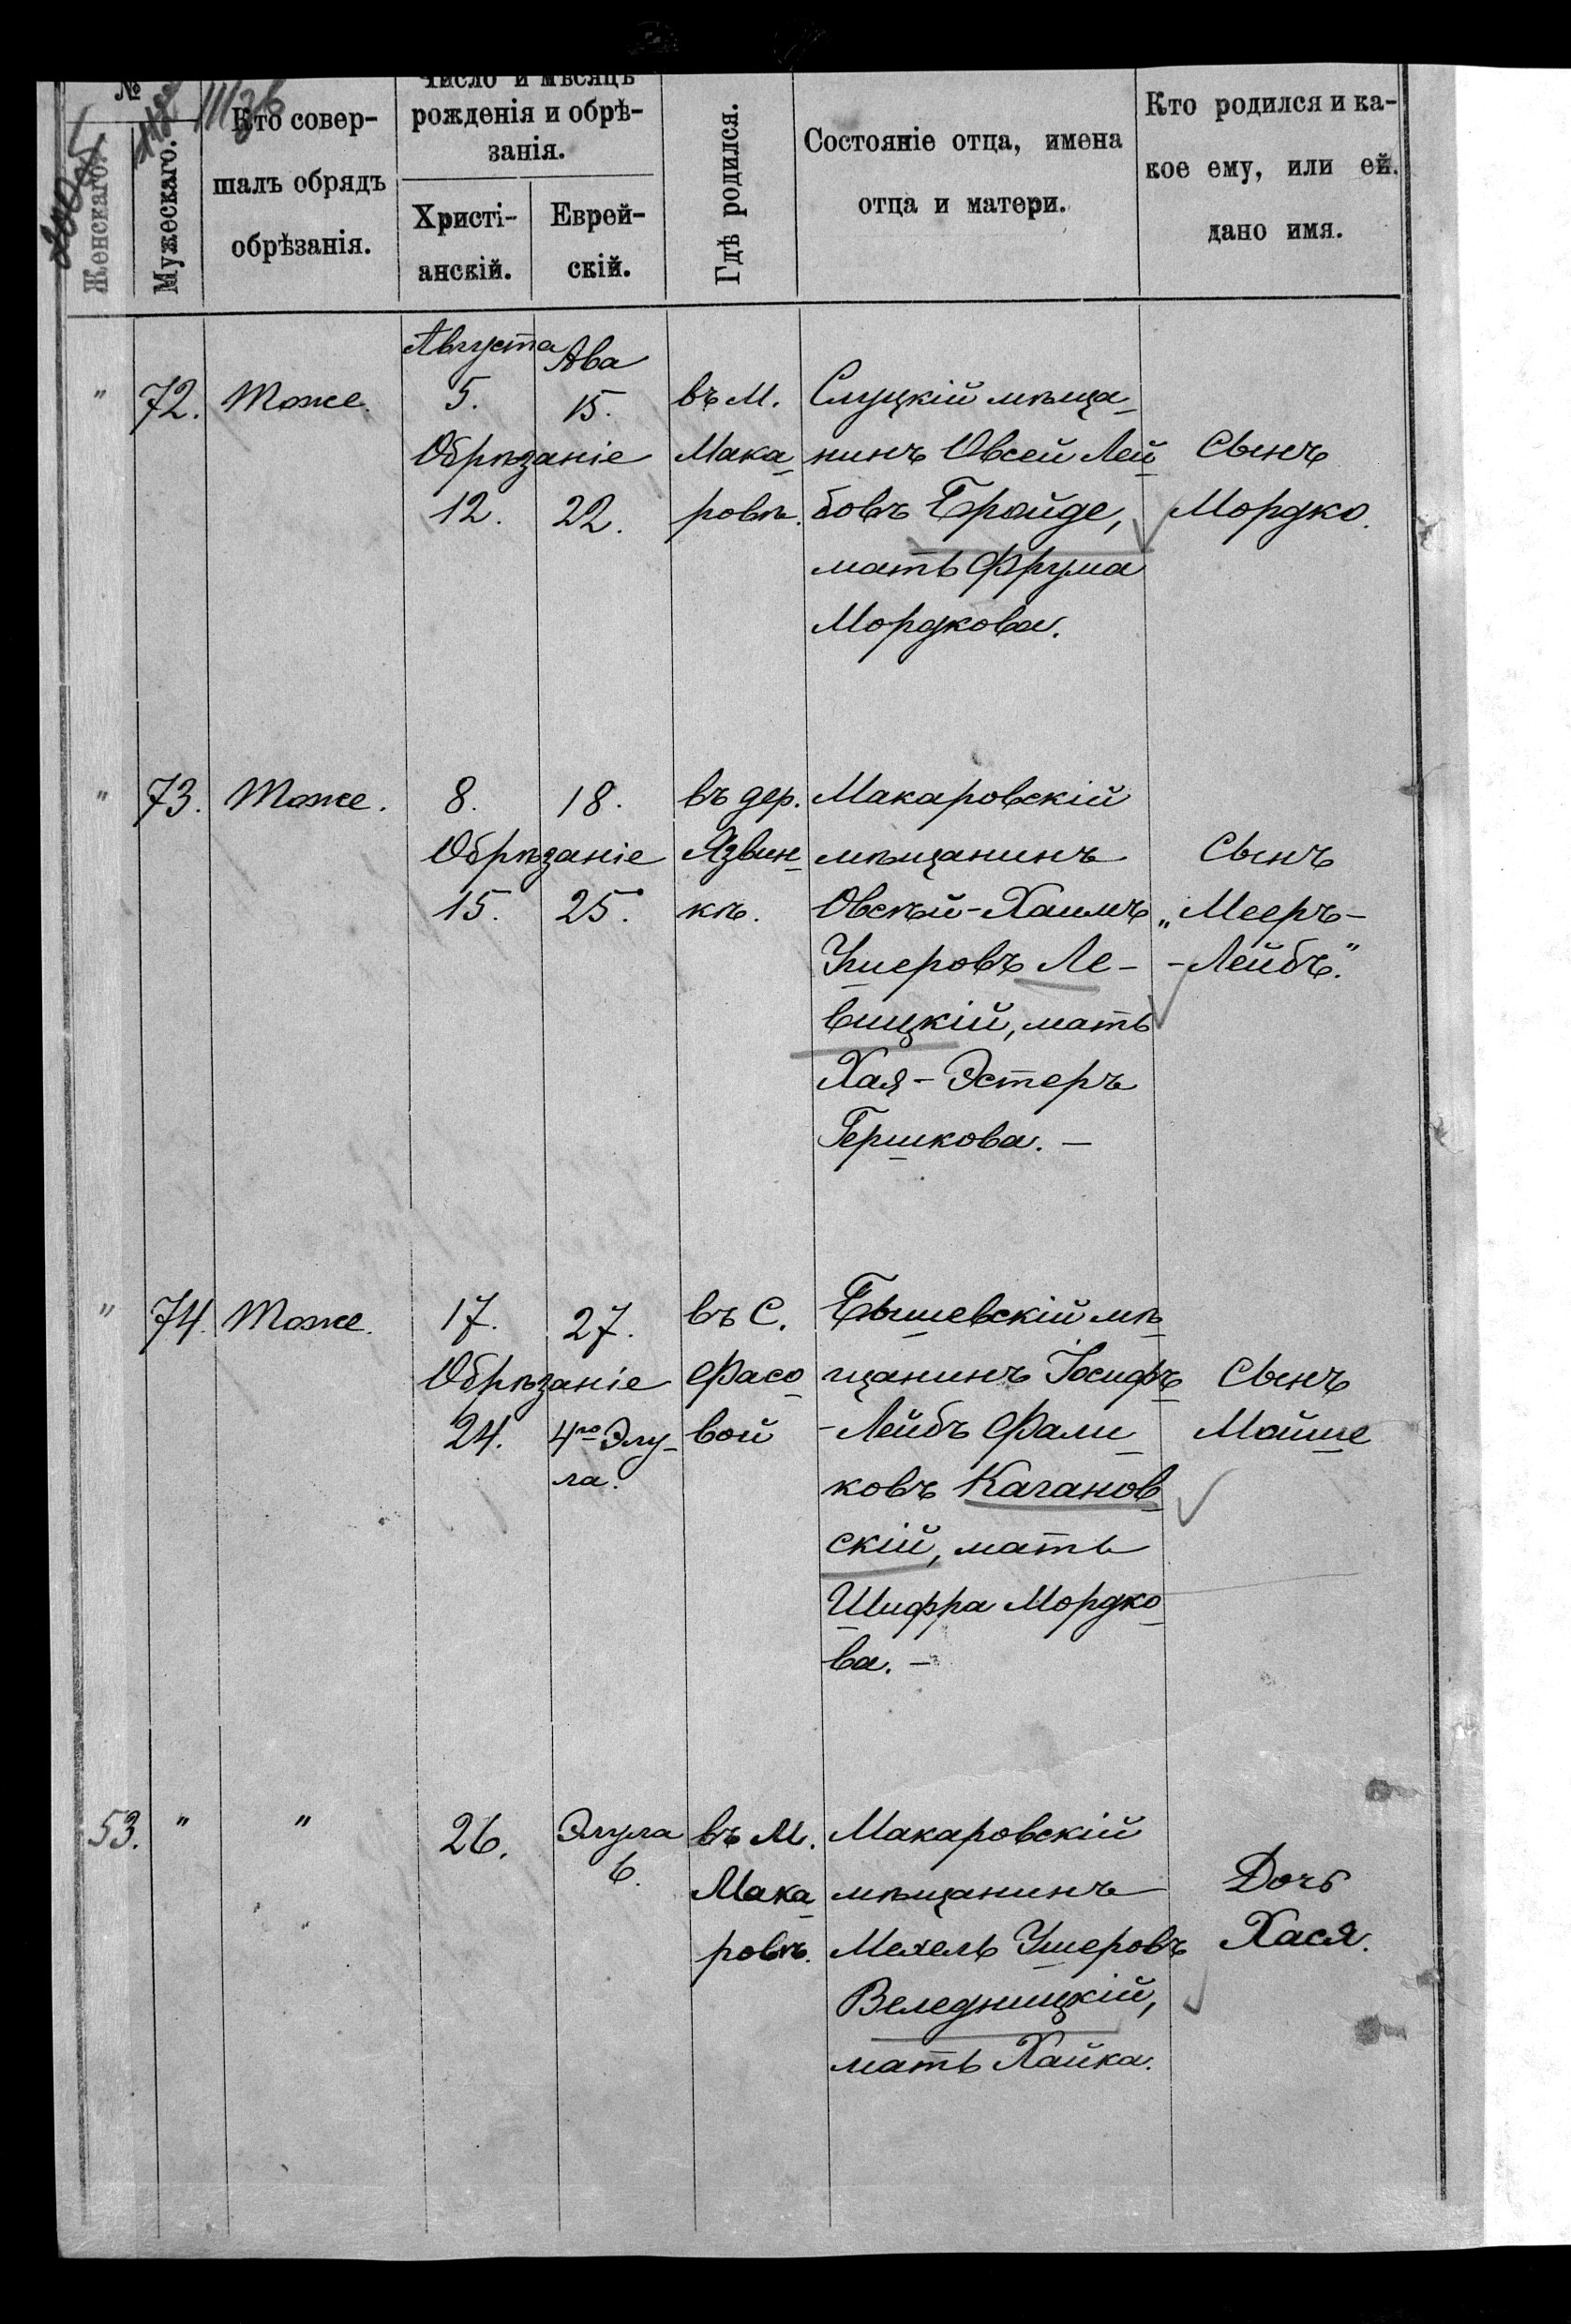 №
Женскаго.
Мужескаго.
Кто совер-
шалъ обрядъ
обрѣзанія.
Число и мѣсяцъ
рожденія и обрѣ-
занія.
Христі-
анскій.
Еврей-
скій.
Гдѣ родился.
Состояніе отца, имена
отца и матери.
Кто родился и ка-
кое ему, или ей.
дано имя.
"
72.
Тоже.
Августа
5.
Ава
15.
Обрѣзаніе
12.
22.
въ М.
Мака-
ровѣ.
Слуцкій мѣща-
нинъ Овсей Лей-
бовъ Бройде,
мать Фрума
Мордкова.
Сынъ
Мордко.
"
73.
Тоже.
8.
18.
Обрѣзаніе
15.
25.
въ дер.
Язвин-
кѣ.
Макаровскій
мѣщанинъ
Овсѣй-Хаимъ
Ушеровъ Ле-
вицкій, мать
Хая-Эстеръ
Гершкова. —
Сынъ
„Мееръ-
-Лейбъ."
"
74.
Тоже.
17.
27.
Обрѣзаніе
24.
4го Элу-
ла.
въ С.
Фасо-
вой
Бышевскій мѣ-
щанинъ Іосифъ
-Лейбъ Фали-
ковъ Каганов-
скій, мать
Шифра Мордко-
ва. —
Сынъ
Мойше
53.
"
"
26.
Элула
6.
въ М.
Мака-
ровѣ.
Макаровскій
мѣщанинъ
Мехель Ушеровъ
Веледницкій,
мать Хайка.
Дочь
Хася.